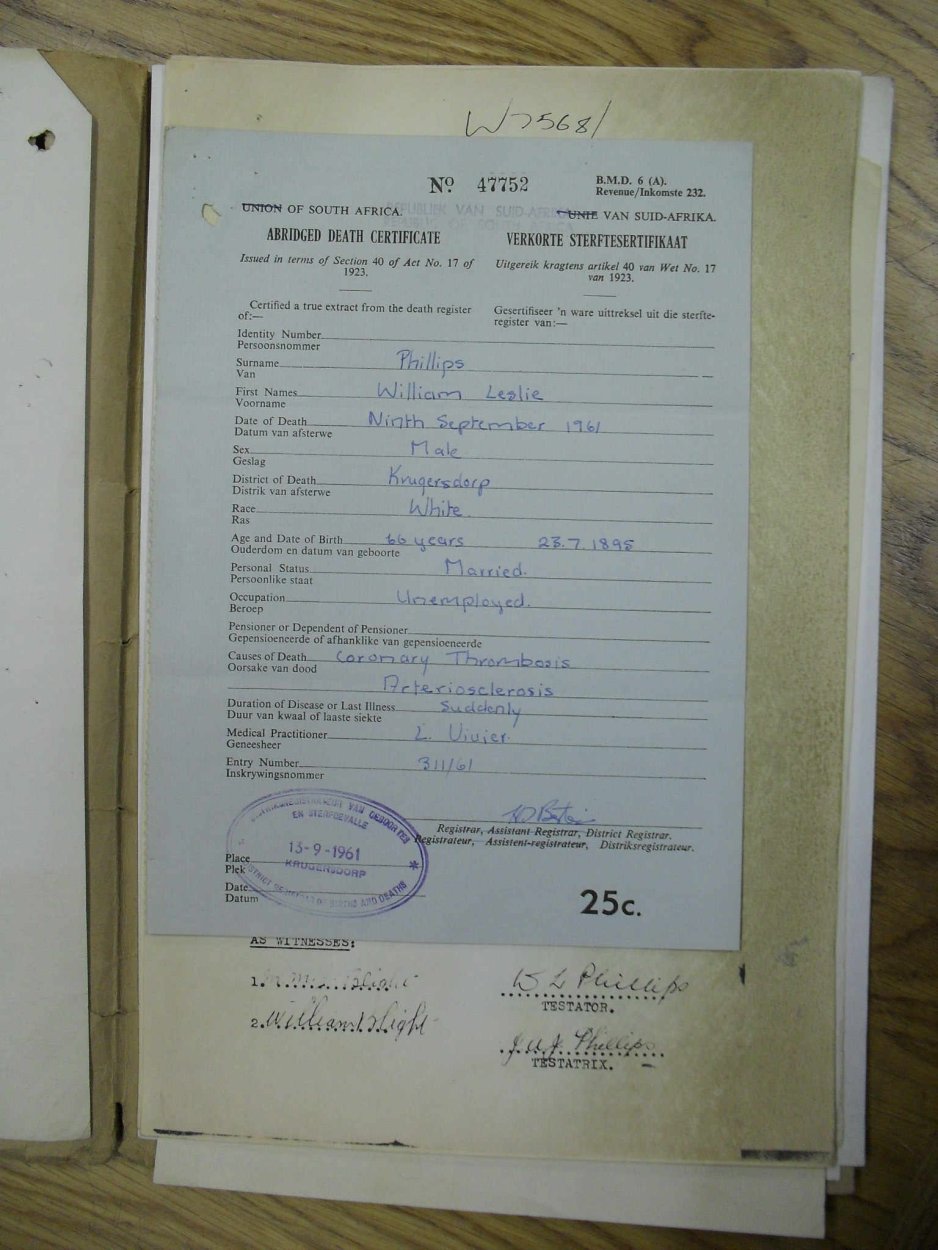 W7568/
Nº 47752
B.M.D. 6 (A).
Revenue/Inkomste 232.
REPUBLIEK VAN SUID-AFRIKA
UNION OF SOUTH AFRICA.
UNIE VAN SUID-AFRIKA.
ABRIDGED DEATH CERTIFICATE
VERKORTE STERFTESERTIFIKAAT
Issued in terms of Section 40 of Act No. 17 of
1923.
Uitgereik kragtens artikel 40 van Wet No. 17
van 1923.
Certified a true extract from the death register
of:—
Gesertifiseer 'n ware uittreksel uit die sterfte-
register van:—
Identity Number
Persoonsnommer
Surname Phillips
Van
First Names William Leslie
Voorname
Date of Death Ninth September 1961
Datum van afsterwe
Sex Male
Geslag
District of Death Krugersdorp
Distrik van afsterwe
Race White
Ras
Age and Date of Birth 66 years 23.7.1895
Ouderdom en datum van geboorte
Personal Status Married.
Persoonlike staat
Occupation Unemployed.
Beroep
Pensioner or Dependent of Pensioner
Gepensioeneerde of afhanklike van gepensioeneerde
Causes of Death Coronary Thrombosis
Oorsake van dood
Arteriosclerosis
Duration of Disease or Last Illness Suddenly
Duur van kwaal of laaste siekte
Medical Practitioner L. Vivier.
Geneesheer
Entry Number 311/61
Inskrywingsnommer
Registrar, Assistant Registrar, District Registrar.
Registrateur, Assistent-registrateur, Distriksregistrateur.
DISTRIKSREGISTRATEUR VAN GEBOORTES
EN STERFGEVALLE
13-9-1961
KRUGERSDORP
DISTRICT REGISTRAR OF BIRTHS AND DEATHS
Place
Plek
Date
Datum
25c.
AS WITNESSES:
1.
W L Phillips
TESTATOR.
2. William
Phillips
TESTATRIX.